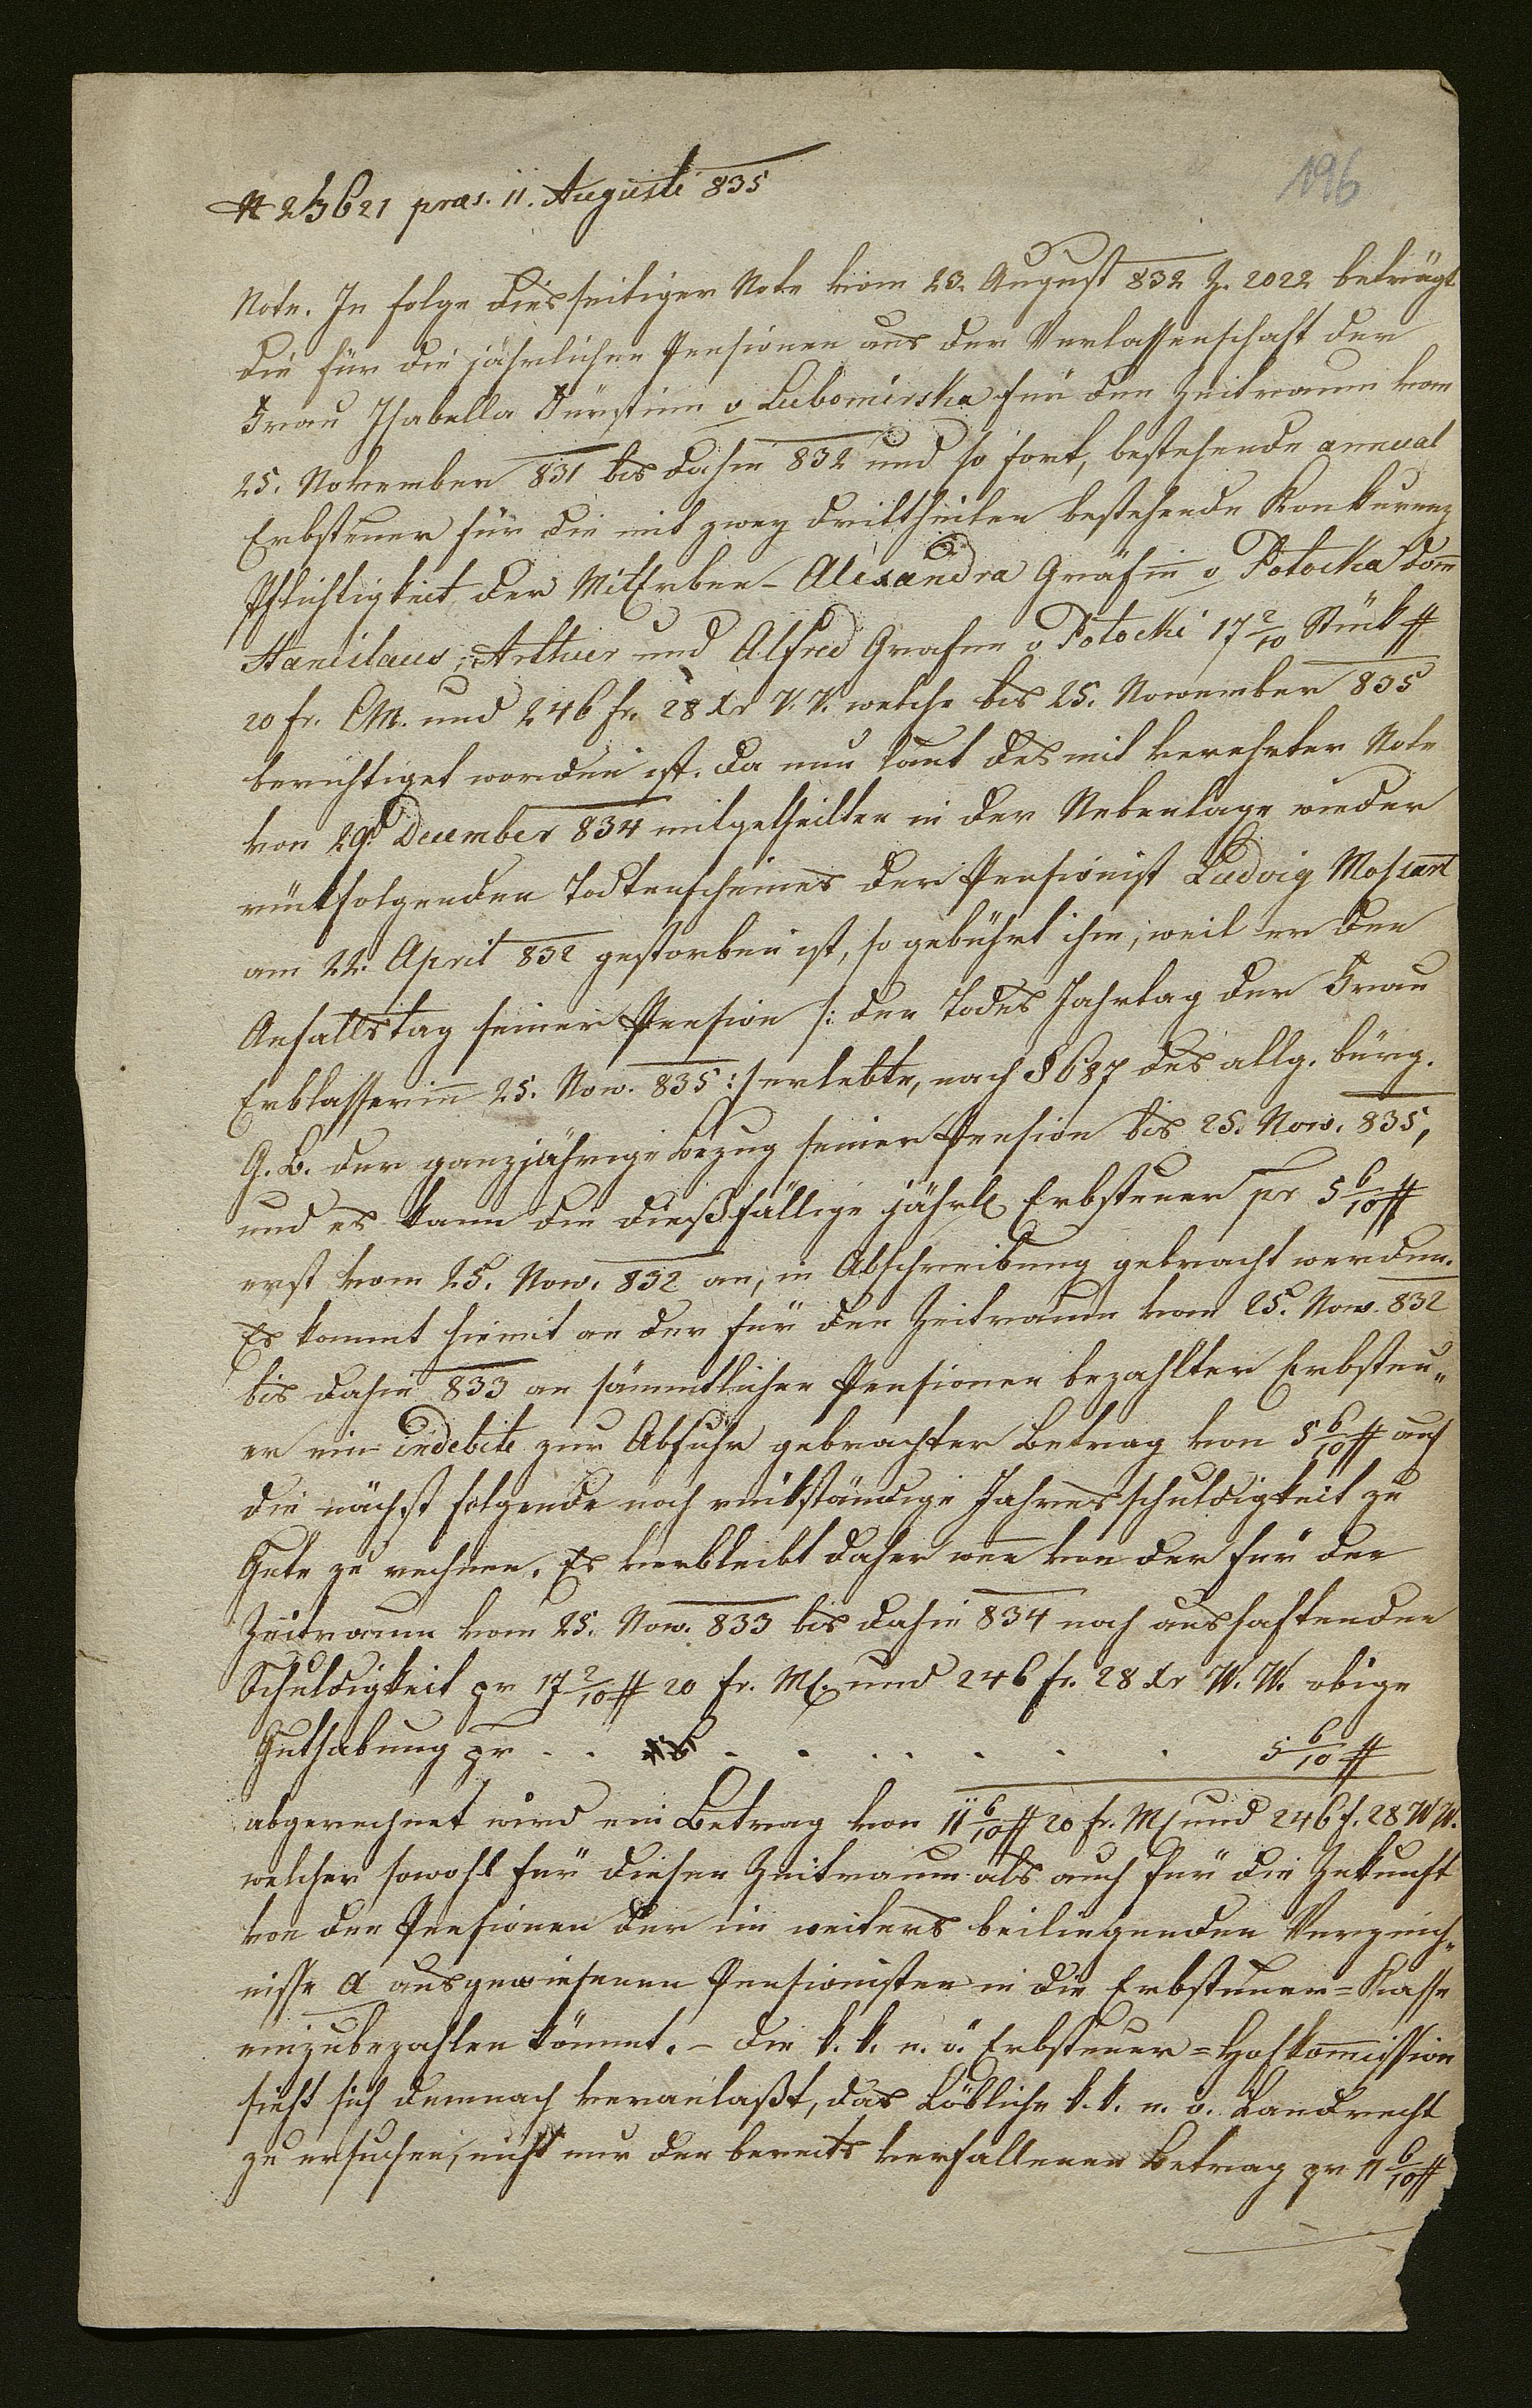 196
N 25621 præs. 11. Augusti 835
Note. In folge diesseitiger Note vom 23. August 832 Z. 2022 beträgt
die für die jährlichen Pensionen aus der Verlassenschaft der
Frau Isabella Fürstinn v Lubomirska für den Zeitraum vom
25. November 831 bis dahin 832 und so fort, bestehende annual
Erbsteuer für die mit zwey Drittheilen bestehende Konkurenz
Pflichtigkeit der MitErben – Alexandra Gräfin v Potocka dann
Stanislaus, Arthur und Alfred Grafen v Potocki 17 2/10 Stück #
20 fr. CM. und 246 fr. 28 xr W. W. welche bis 25. November 835
berichtiget worden ist. Da nun laut des mit verehrter Note
von 29. December 834 mitgetheilten in der Nebenlage wieder
rückfolgenden Todtenscheines der Pensionist Ludvig Moszart
am 22. April 832 gestorben ist, so gebührt ihm, weil er den
Anfallstag seiner Pension /: den Todes Jahrtag der Frau
Erblasserinn 25. Nov. 835 :/ erlebte, nach § 687 des allg. bürg.
G. B. der ganzjährige bezug seiner Pension bis 25. Nov. 835,
und es kann die dießfällige jährl Erbsteuer pr 5 6/10 #
erst vom 25. Nov. 832 an, in Abschreibung gebracht werden.
Es kommt hiemit an der für den Zeitraum vom 25. Nov. 832
bis dahin 833 an sämmtlichen Pensionen bezahlten Erbsteu„
er ein indebite zur Abfuhr gebrachter Betrag von 5 6/10 # auf
die nächst folgende noch rückständige Jahresschuldigkeit zu
Gute zu rechnen. Es verbleibt daher wenn von der für den
Zeitraum vom 25. Nov. 833 bis dahin 834 noch aushaftenden
Schuldigkeit pr 17 2/10 # 20 fr. M. und 246 fr. 28 xr W. W. obige
Guthabung pr . . . . . . . . . 5 6/10 #
abgerechnet wird ein Betrag von 11 6/10 # 20 fr. M und 246 f. 28 W W.
welcher sowohl für diesen Zeitraum als auch für die Zukunft
von den Pensionen der im weiters beiliegenden Verzeich„
nisse A ausgewiesenen Pensionisten in die Erbsteuer=Kasse
einzubezahlen kömmt. – Die k. k. n. ö. Erbsteuer=Hofkommission
sieht sich demnach veranlaßt, das Löbliche k. k. n. ö. Landrecht
zu ersuchen, nicht nur den bereits verfallenen Betrag pr 11 6/10 #